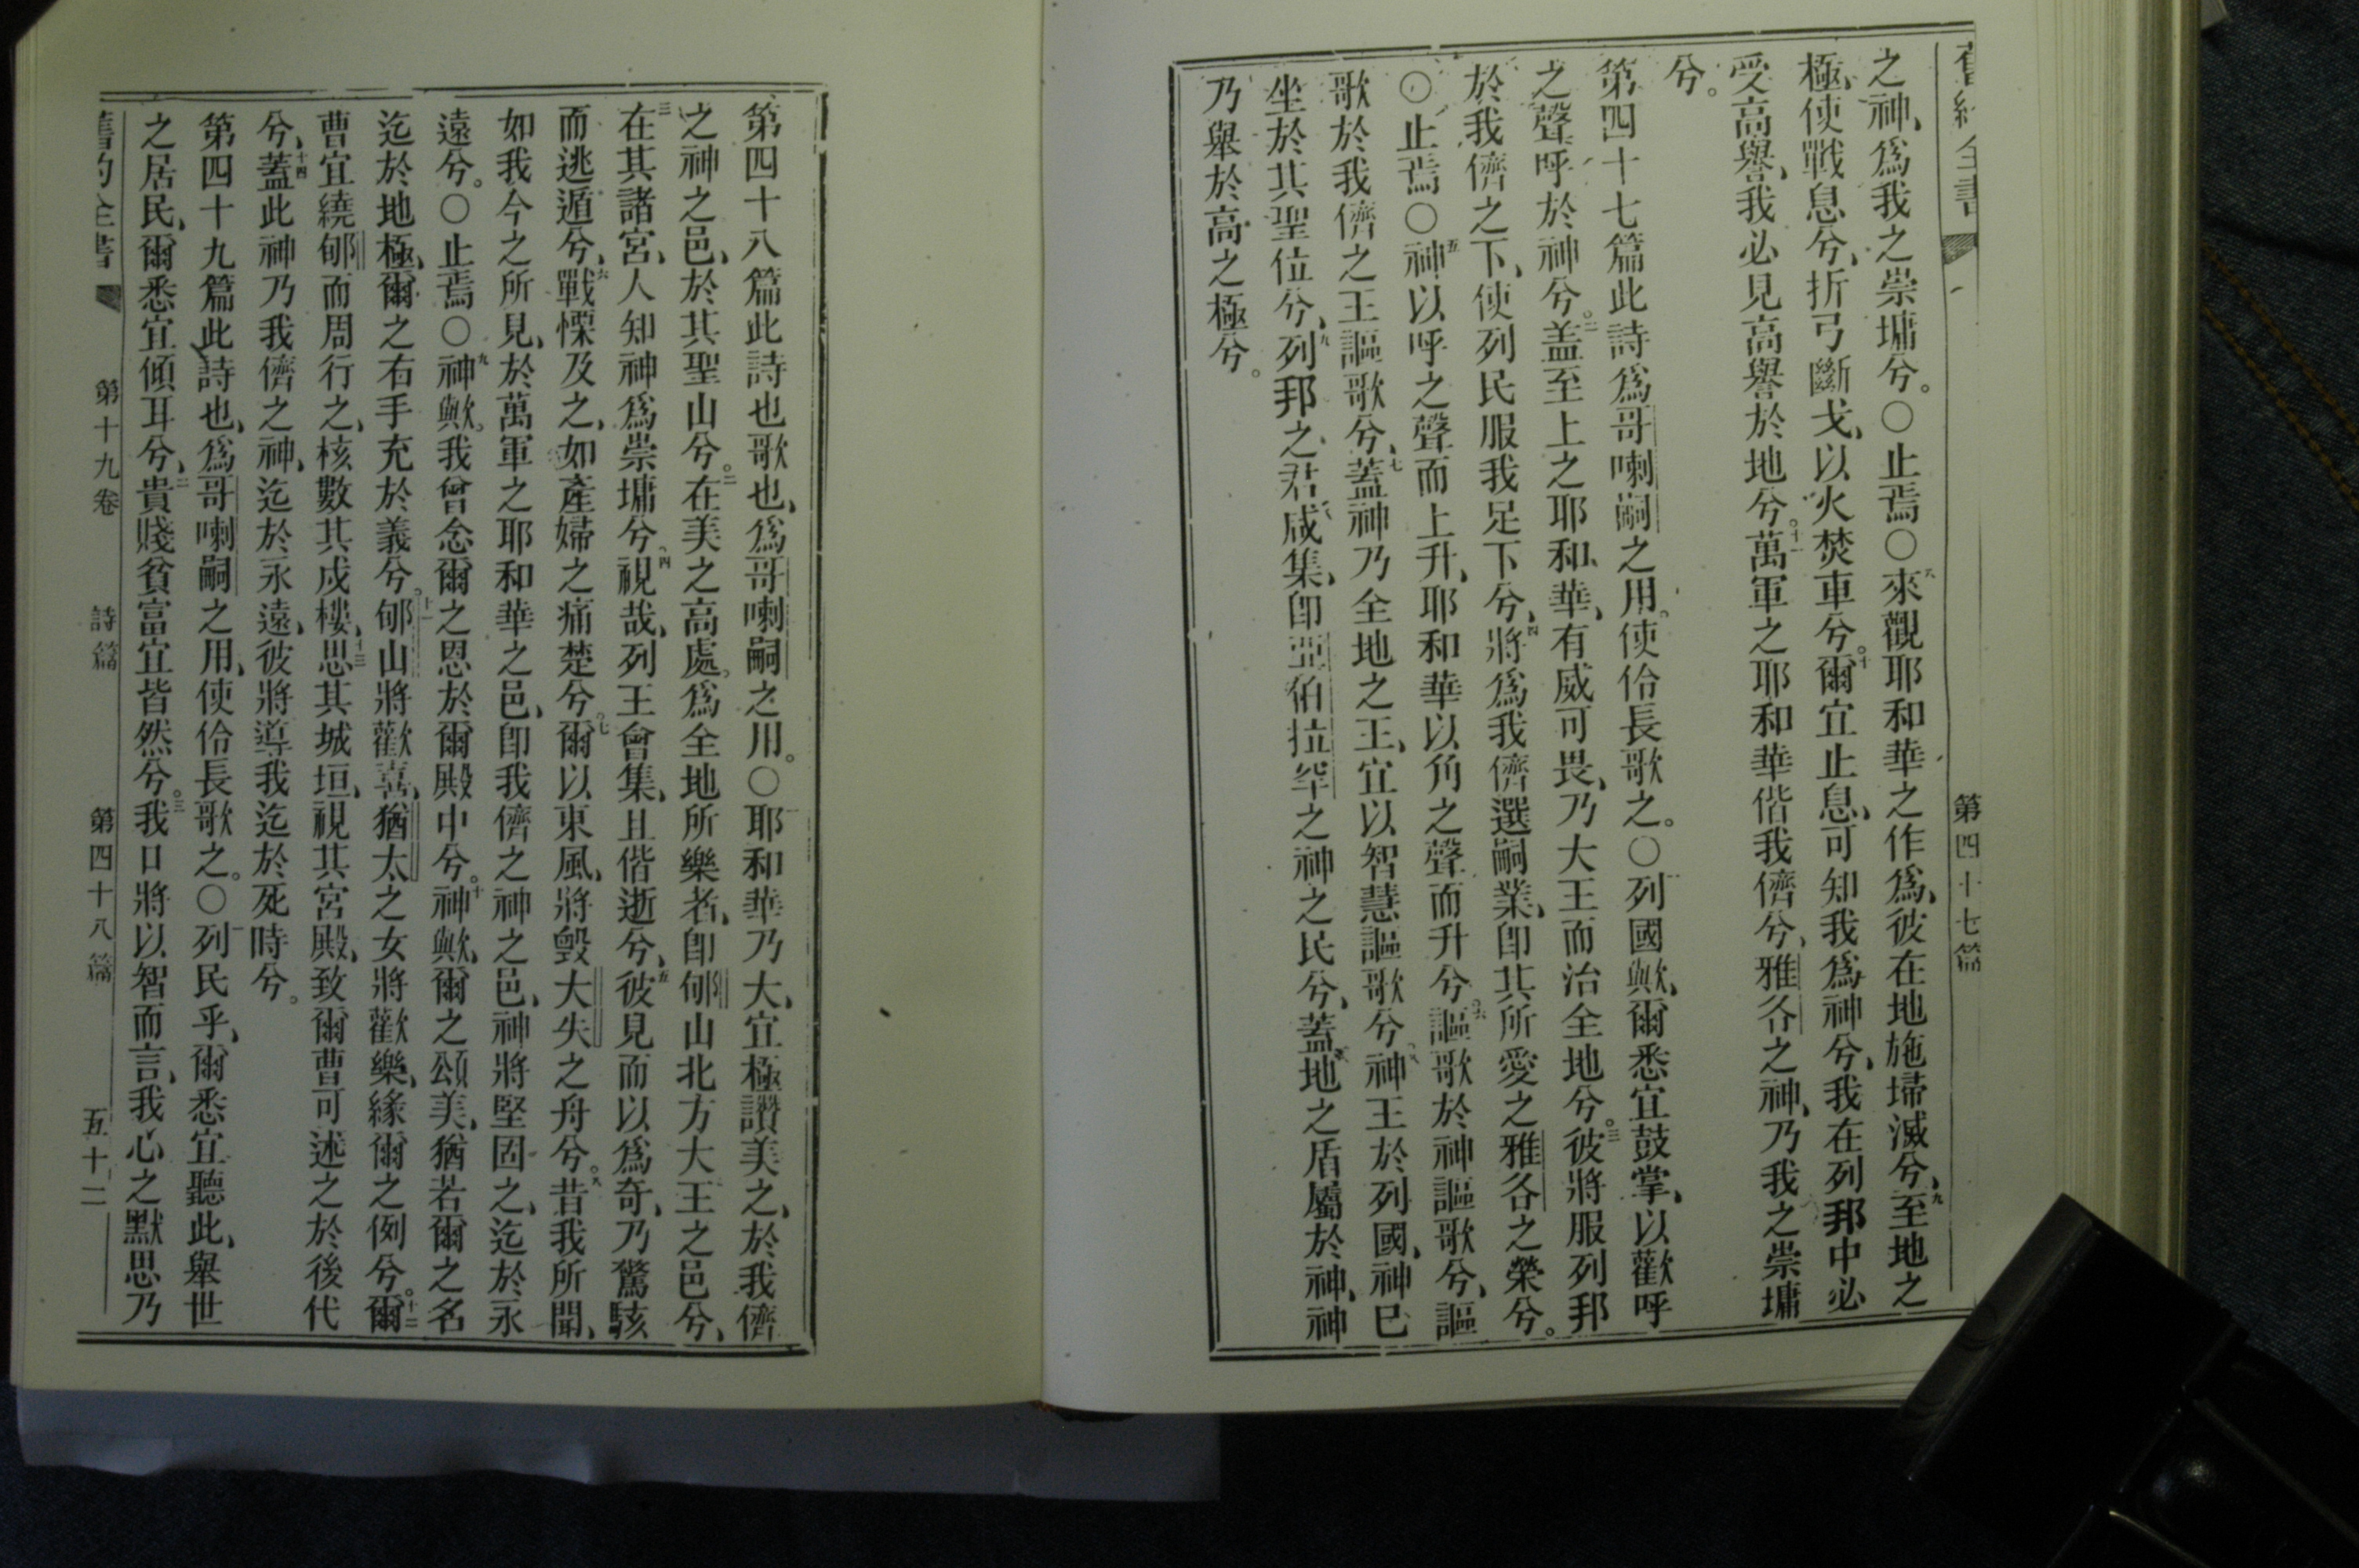 舊約全書 第四十七篇
之神、爲我之崇墉兮。○止焉○八來觀耶和華之作爲、彼在地施埽滅兮、九至地之
極、使戰息兮、折弓斷戈、以火焚車兮。十爾宜止息、可知我爲神兮、我在列邦中必
受高譽、我必見高譽於地兮。十一萬軍之耶和華偕我儕兮、雅各之神、乃我之崇墉
兮。
第四十七篇此詩爲哥喇嗣之用。使伶長歌之。○一列國歟、爾悉宜鼓掌、以歡呼
之聲呼於神兮。二盖至上之耶和華、有威可畏、乃大王而治全地兮。三彼將服列邦
於我儕之下、使列民服我足下兮、四將爲我儕選嗣業、卽其所愛之雅各之榮兮。
○止焉○五神以呼之聲而上升、耶和華以角之聲而升兮。六謳歌於神謳歌兮、謳
歌於我儕之王謳歌兮、七蓋神乃全地之王、宜以智慧謳歌兮、八神王於列國、神已
坐於其聖位兮、九列邦之君咸集、卽亞伯拉罕之神之民兮、蓋地之盾屬於神、神
乃舉於高之極兮。
第四十八篇此詩也歌也、爲哥喇嗣之用。○一耶和華乃大、宜極讚美之、於我儕
之神之邑、於其聖山兮。二在美之高處。爲全地所樂者、卽郇山北方大王之邑兮、
三在其諸宮、人知神爲崇墉兮、四視哉、列王會集、且偕逝兮、五彼見而以爲奇、乃驚駭
而逃遁兮、六戰慄及之、如產婦之痛楚兮、七爾以東風、將毀大失之舟兮。八昔我所聞、
如我今之所見、於萬軍之耶和華之邑、卽我儕之神之邑、神將堅固之、迄於永
遠兮。○止焉○九神歟。我曾念爾之恩於爾殿中兮。十神歟、爾之頌美、猶若爾之名
迄於地極、爾之右手充於義兮。十一郇山將歡喜、猶太之女將歡樂、緣爾之例兮。十二爾
曹宜繞郇而周行之、核數其戍樓、十三思其城垣、視其宮殿、致爾曹可述之於後代
兮、十四蓋此神乃我儕之神、迄於永遠、彼將導我迄於死時兮。
第四十九篇此詩也、爲哥喇嗣之用、使伶長歌之。○一列民乎、爾悉宜聽此、舉世
之居民、爾悉宜傾耳兮、二貴賤貧富宜皆然兮。三我口將以智而言、我心之默思乃
舊約全書 第十九卷 詩篇 第四十八篇 五十二